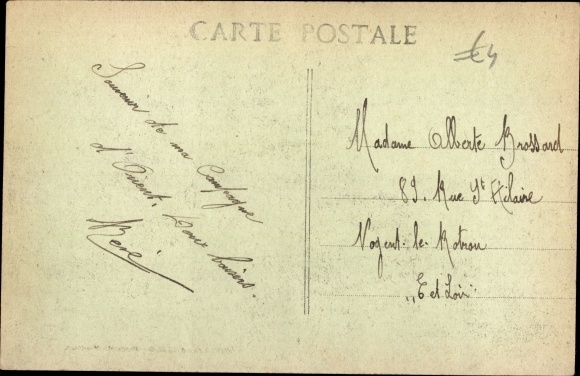 CARTE POSTALE
£4
Souvenir de ma Campagne
d'Orient. Doux baisers.
René
Madame Alberte Brossard
89. Rue St Hilaire
Nogent-le-Rotrou
"E et Loir"